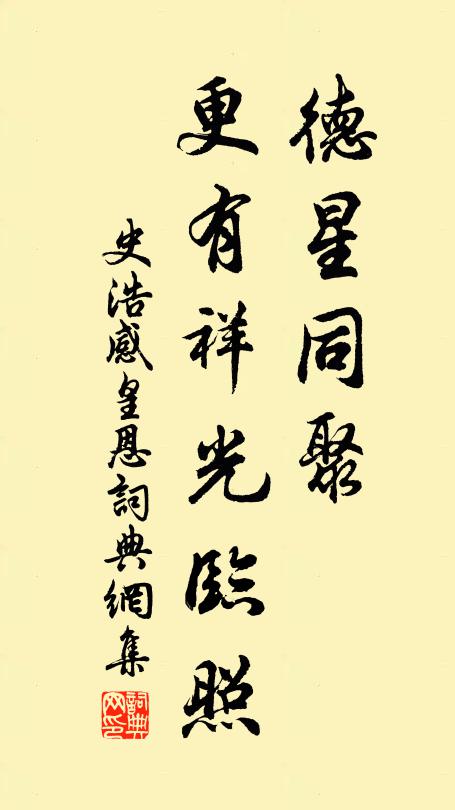 德星同聚
更有祥光臨照
史浩感皇恩詞典網集
詞典网印